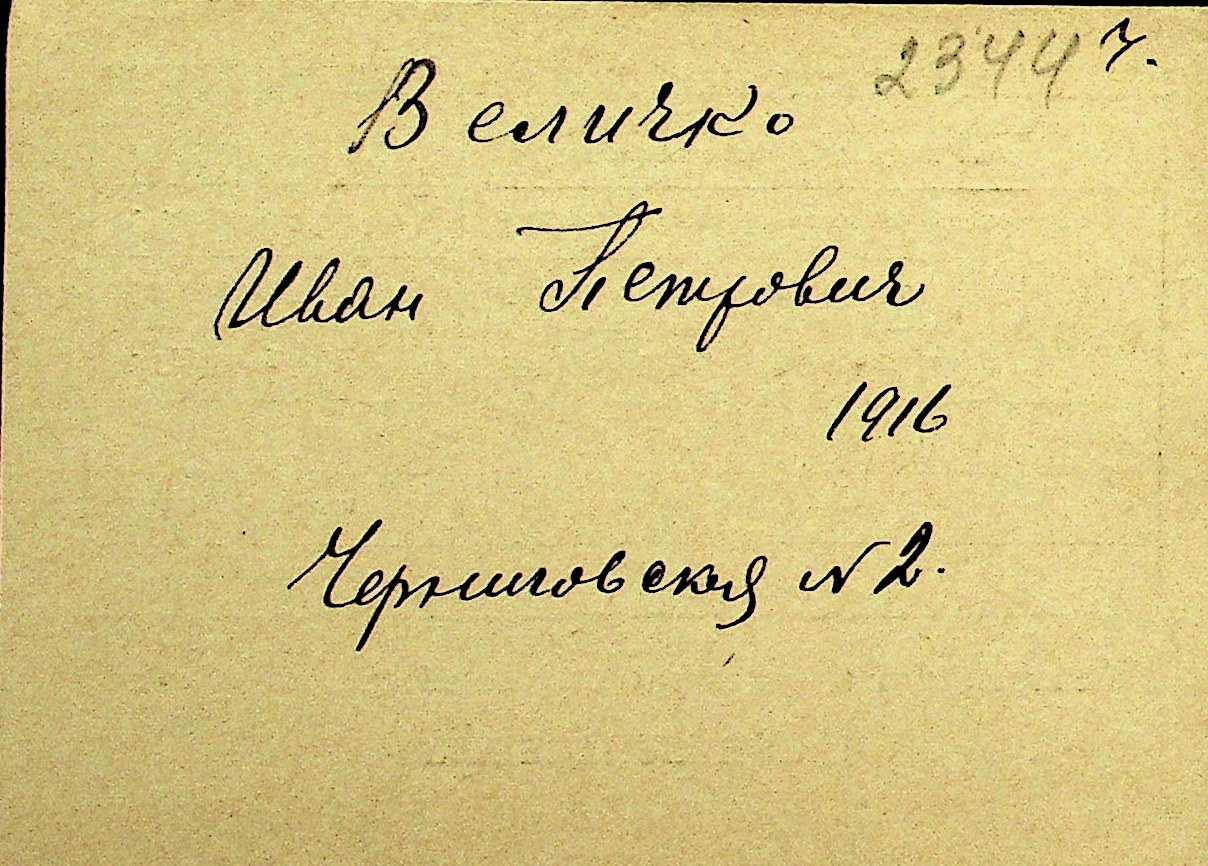 2344 ч.
Величко
Иван Петрович
1916
Черниговская № 2.